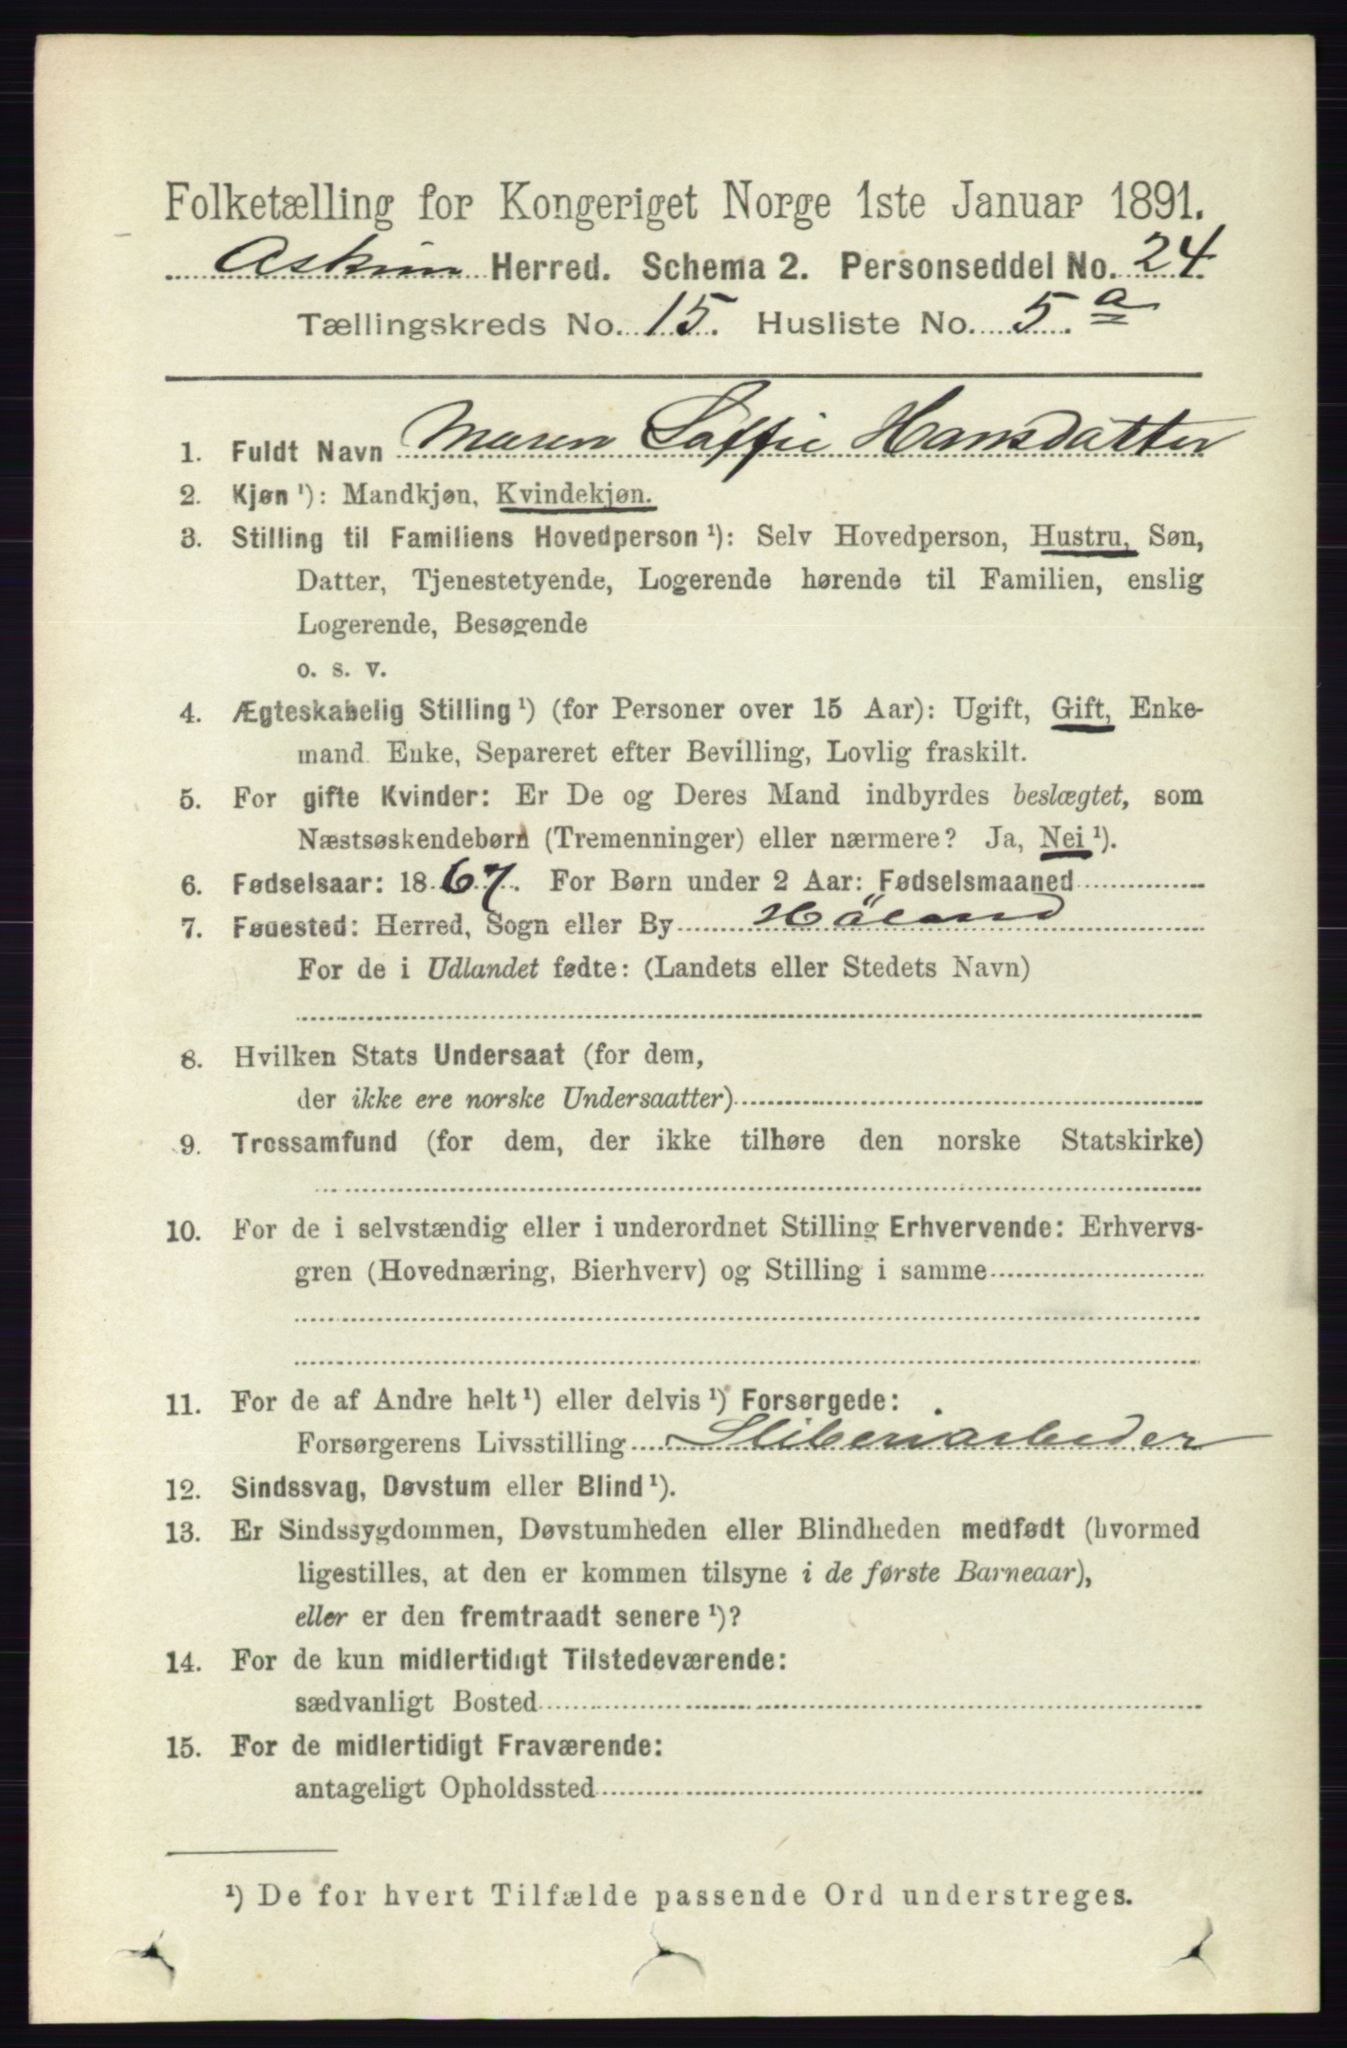 Folketælling for Kongeriget Norge 1ste Januar 1891.
Askim Herred. Schema 2. Personseddel No. 24
Tællingskreds No. 15. Husliste No. 5. a
1. Fuldt Navn Maren Saffie Hansdatter
2. Kjøn ¹): Mandkjøn, Kvindekjøn.
3. Stilling til Familiens Hovedperson ¹): Selv Hovedperson, Hustru, Søn,
Datter, Tjenestetyende, Logerende hørende til Familien, enslig
Logerende, Besøgende
o. s. v.
4. Ægteskabelig Stilling ¹) (for Personer over 15 Aar): Ugift, Gift, Enke-
mand Enke, Separeret efter Bevilling, Lovlig fraskilt.
5. For gifte Kvinder: Er De og Deres Mand indbyrdes beslægtet, som
Næstsøskendebørn (Tremenninger) eller nærmere? Ja, Nei ¹).
6. Fødselsaar: 1867. For Børn under 2 Aar: Fødselsmaaned
7. Fødested: Herred, Sogn eller By Høland
For de i Udlandet fødte: (Landets eller Stedets Navn)
8. Hvilken Stats Undersaat (for dem,
der ikke ere norske Undersaatter)
9. Trossamfund (for dem, der ikke tilhøre den norske Statskirke)
10. For de i selvstændig eller i underordnet Stilling Erhvervende: Erhvervs-
gren (Hovednæring, Bierhverv) og Stilling i samme
11. For de af Andre helt ¹) eller delvis ¹) Forsørgede:
Forsørgerens Livsstilling Sliberiarbeder
12. Sindssvag, Døvstum eller Blind ¹).
13. Er Sindssygdommen, Døvstumheden eller Blindheden medfødt (hvormed
ligestilles, at den er kommen tilsyne i de første Barneaar),
eller er den fremtraadt senere ¹)?
14. For de kun midlertidigt Tilstedeværende:
sædvanligt Bosted
15. For de midlertidigt Fraværende:
antageligt Opholdssted
¹) De for hvert Tilfælde passende Ord understreges.